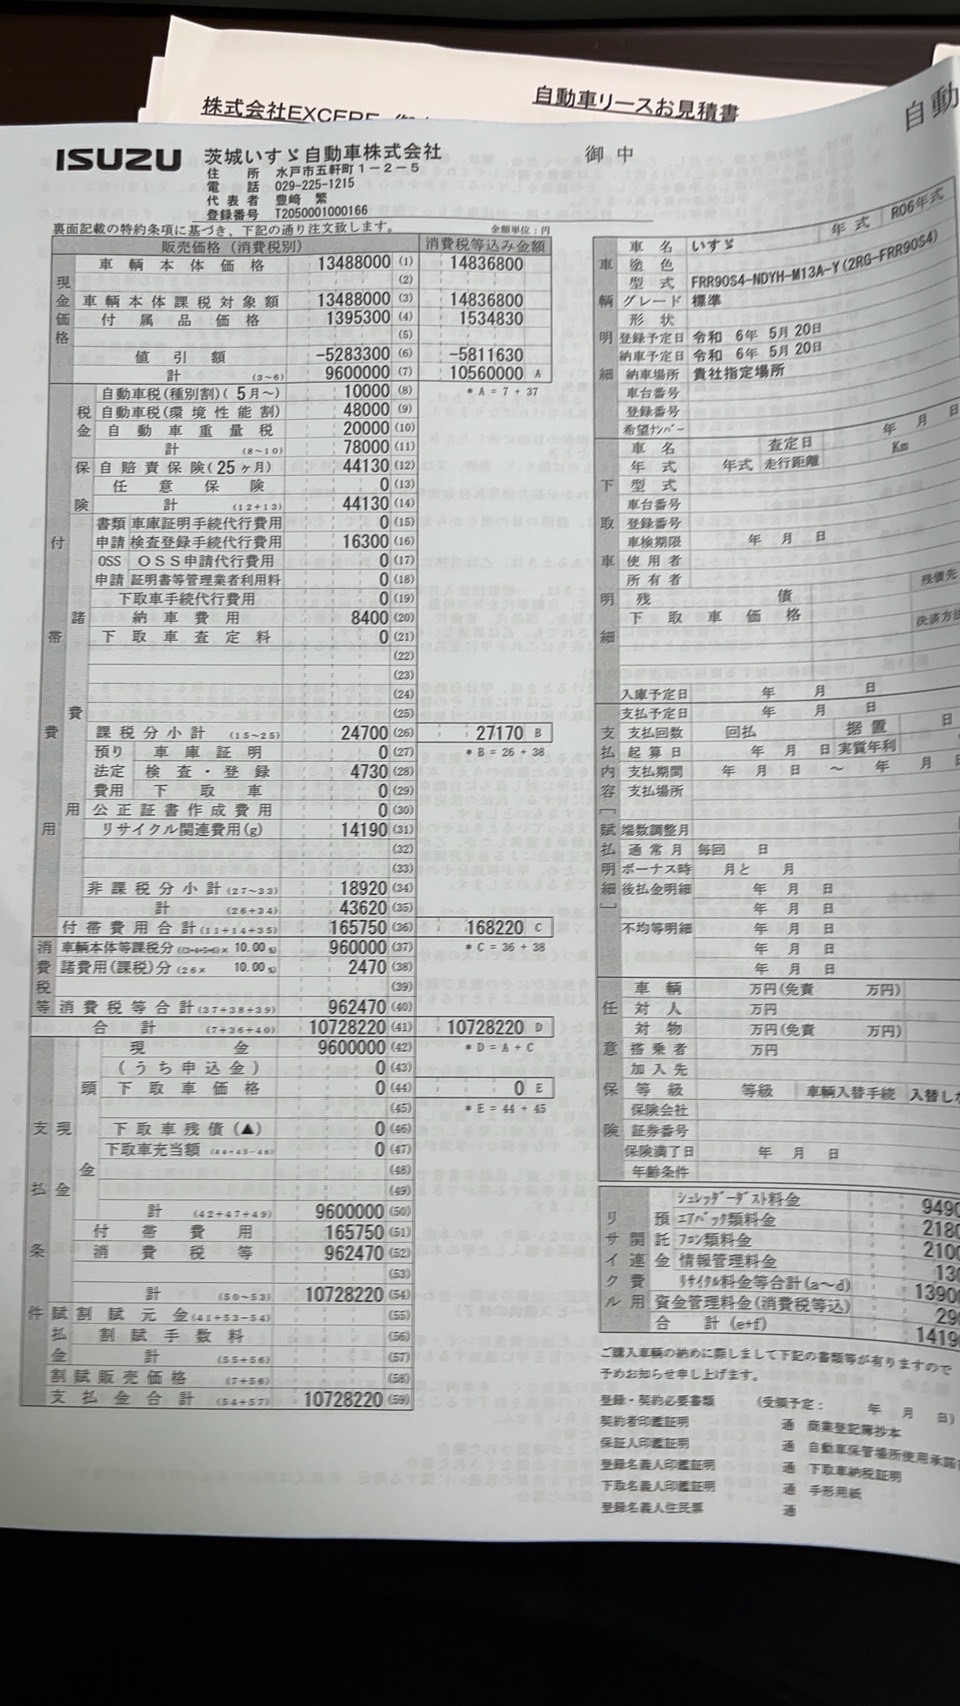 自動車リースお見積書
株式会社EXCERE
自動
ISUZU 茨城いすゞ自動車株式会社 御中
住所 水戸市五軒町1-2-5
電話 029-225-1215
代表者 豊﨑 繁
登録番号 T2050001000166
裏面記載の特約条項に基づき、下記の通り注文致します。 金額単位:円
販売価格(消費税別) 消費税等込み金額
現金価格
車輌本体価格 13488000 (1) 14836800
(2)
車輌本体課税対象額 13488000 (3) 14836800
付属品価格 1395300 (4) 1534830
(5)
値引額 -5283300 (6) -5811630
計 (3~6) 9600000 (7) 10560000 A
付帯費用
税金
自動車税(種別割)(5月~) 10000 (8) *A=7+37
自動車税(環境性能割) 48000 (9)
自動車重量税 20000 (10)
計 (8~10) 78000 (11)
保険
自賠責保険(25ヶ月) 44130 (12)
任意保険 0 (13)
計 (12+13) 44130 (14)
諸費用
書類 車庫証明手続代行費用 0 (15)
申請 検査登録手続代行費用 16300 (16)
OSS OSS申請代行費用 0 (17)
申請 証明書等管理業者利用料 0 (18)
下取車手続代行費用 0 (19)
納車費用 8400 (20)
下取車査定料 0 (21)
(22)
(23)
(24)
(25)
課税分小計 (15~25) 24700 (26) 27170 B
預り 車庫証明 0 (27) *B=26+38
法定 検査・登録 4730 (28)
費用 下取車 0 (29)
公正証書作成費用 0 (30)
リサイクル関連費用(g) 14190 (31)
(32)
(33)
非課税分小計 (27~33) 18920 (34)
計 (26+34) 43620 (35)
付帯費用合計 (11+14+35) 165750 (36) 168220 C
消費税等
車輌本体等課税分 ((3+4+5+6)×10.00%) 960000 (37) *C=36+38
諸費用(課税)分 (26×10.00%) 2470 (38)
(39)
消費税等合計 (37+38+39) 962470 (40)
合計 (7+36+40) 10728220 (41) 10728220 D
支払条件
現金
頭金
現金 9600000 (42) *D=A+C
(うち申込金) 0 (43)
下取車価格 0 (44) 0 E
(45) *E=44+45
下取車残債(▲) 0 (46)
下取車充当額 (44-45-46) 0 (47)
(48)
(49)
計 (42+47+49) 9600000 (50)
付帯費用 165750 (51)
消費税等 962470 (52)
(53)
計 (50~53) 10728220 (54)
賦払金
割賦元金 (41+53-54) (55)
割賦手数料 (56)
計 (55+56) (57)
割賦販売価格 (7+56) (58)
支払金合計 (54+57) 10728220 (59)
車輌明細
車名 いすゞ 年式 R06年式
塗色
型式 FRR90S4-NDYH-M13A-Y(2RG-FRR90S4)
グレード 標準
形状
登録予定日 令和 6年 5月20日
納車予定日 令和 6年 5月20日
納車場所 貴社指定場所
車台番号
登録番号
希望ナンバー
下取車明細
車名 査定日 年 月 日
年式 年式 走行距離 Km
型式
車台番号
登録番号
車検期限 年 月 日
使用者
所有者
残債 残債先
下取車価格 決済方法
入庫予定日 年 月 日
支払内容[賦払明細]
支払予定日 年 月 日
支払回数 回払 据置 日
起算日 年 月 日 実質年利
支払期間 年 月 日 ~ 年 月 日
支払場所
端数調整月
通常月 毎回 日
ボーナス時 月と 月
後払金明細 年 月 日
年 月 日
不均等明細 年 月 日
年 月 日
年 月 日
任意保険
車輌 万円(免責 万円)
対人 万円
対物 万円(免責 万円)
搭乗者 万円
加入先
等級 等級 車輌入替手続 入替し
保険会社
証券番号
保険満了日 年 月 日
年齢条件
リサイクル関連費用
預託金
シュレッダーダスト料金 9490
エアバック類料金 2180
フロン類料金 2100
情報管理料金 130
リサイクル料金等合計(a~d) 13900
資金管理料金(消費税等込) 290
合計(e+f) 14190
ご購入車輌の納めに際しまして下記の書類等が有りますので
予めお知らせ申し上げます。
登録・契約必要書類 (受領予定: 年 月 日)
契約者印鑑証明 通 商業登記簿抄本
保証人印鑑証明 通 自動車保管場所使用承諾
登録名義人印鑑証明 通 下取車納税証明
下取名義人印鑑証明 通 手形用紙
登録名義人住民票 通